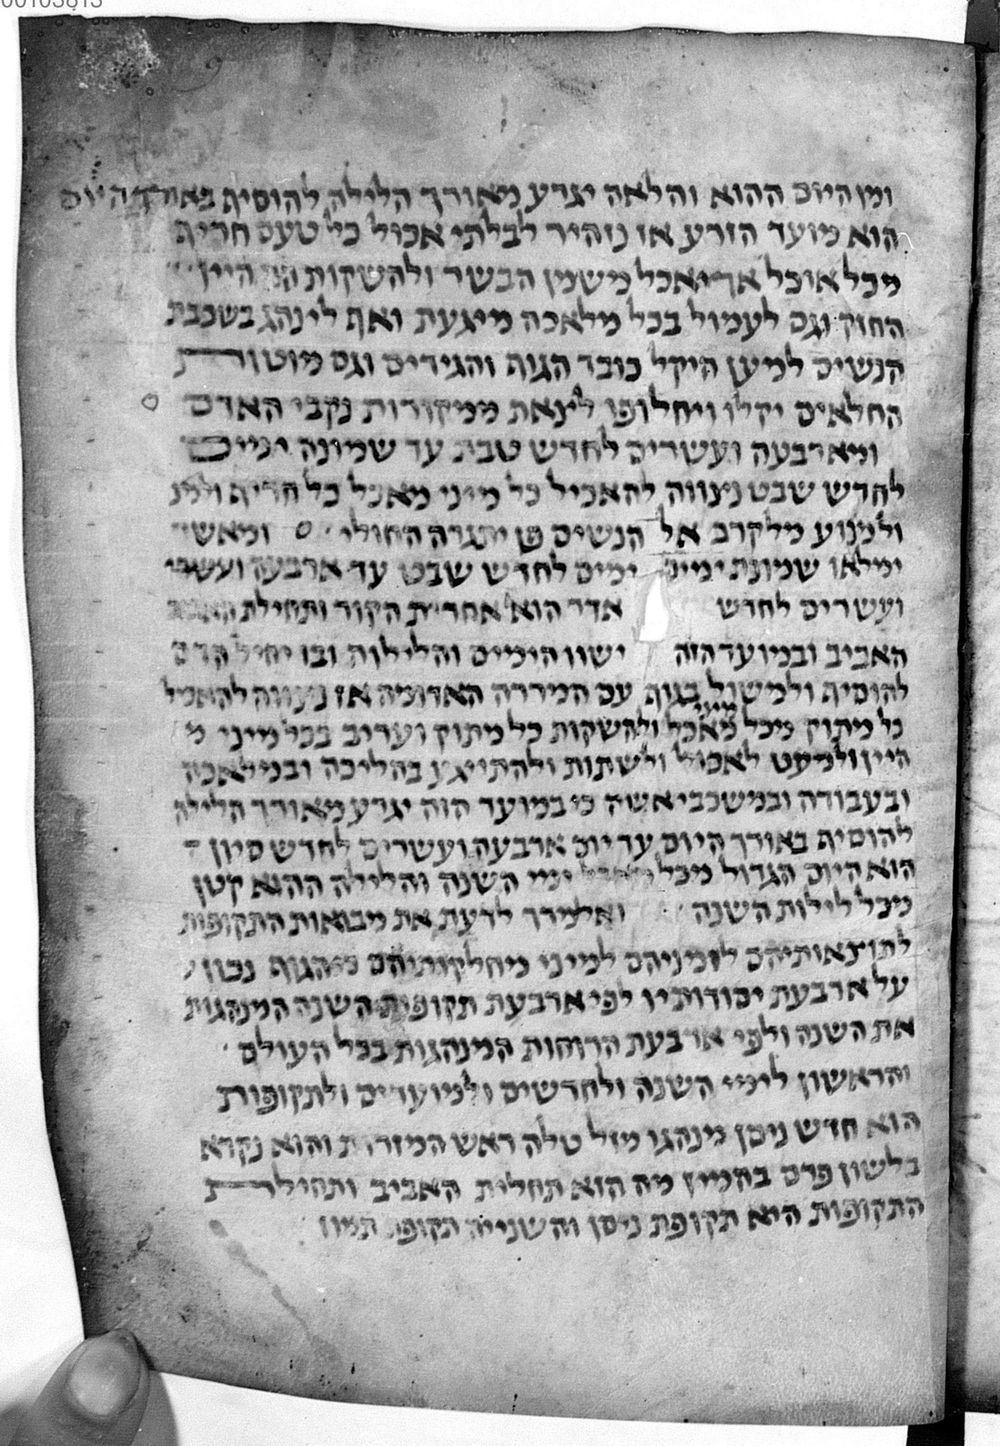 00103813
ומן היום ההוא והלאה יגרע מאורך הלילה להוסיף באורך היום
הוא מועד הזרע אז נזהיר לבלתי אכול כל טעם חריף
מכל אוכל אך יאכל משמן הבשר ולהשקות היין
החזק וגם לעמול בכל מלאכה מיגעת ואף לינהג בשכבת
הנשים למען היקל כובד הגוף והגידים וגם מוטות
החלאים יקלו ויחלופו לצאת ממקורות נקבי האדם
ומארבעה ועשרים לחדש טבת עד שמונה ימים
לחדש שבט נצווה להאכיל כל מיני מאכל כל חריף
ולמנוע מלקרב אל הנשים פן יתגרה החולי ומאשר
ימלאו שמונת ימים ימים לחדש שבט עד ארבעה ועשרי
ועשרים לחדש אדר הוא אחרית הקור ותחילת
האביב ובמועד הזה ישוו הימים והלילות ובו יחל הדם
להוסיף ולמשול בגוף עם המררה האדומה אז נצווה להאכל
כל מתוק מכל מאכל ולהשקות כל מתוק וערוב בכל מיני
היין ולמעט לאכול ולשתות ולהתייגע בהליכה ובמלאכה
ובעבודה ובמשכבי אשה כי במועד הזה יגרע מאורך הלילה
להוסיף באורך היום עד יום ארבעה ועשרים לחדש סיון
הוא היום הגדול מכל ימי השנה והלילה ההוא קטן
מכל לילות השנה ואלמדך לדעת את מבואות התקופות
לתוצאותיהם לזמניהם למיני מחלקותיהם הגוף נכון
על ארבעת יסודותיו לפי ארבעת תקופות השנה המנהגות
את השנה ולפי ארבעת הרוחות המנהגות בכל העולם
והראשון לימי השנה ולחדשים ולמועדים ולתקופות
הוא חדש ניסן מנהגו מזל טלה ראש המזרות והוא נקרא
בלשון פרס בהמין מה הוא תחלית האביב ותחילת
התקופות היא תקופת ניסן והשנייה תקופת תמוז